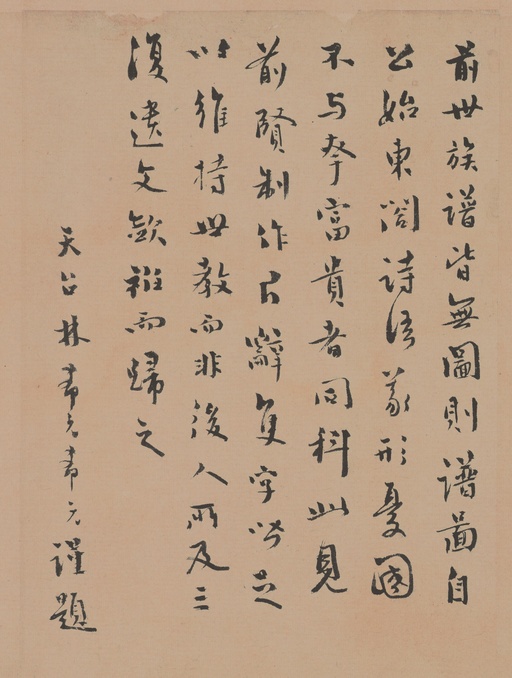 前世族譜皆無圖則譜圖自
公始東閣詩語義形憂國
不与夸富貴者同科此見
前賢制作片辭隻字皆足
以維持世教而非後人所及三
復遺文歛衽而歸之
天台林希元希元謹題